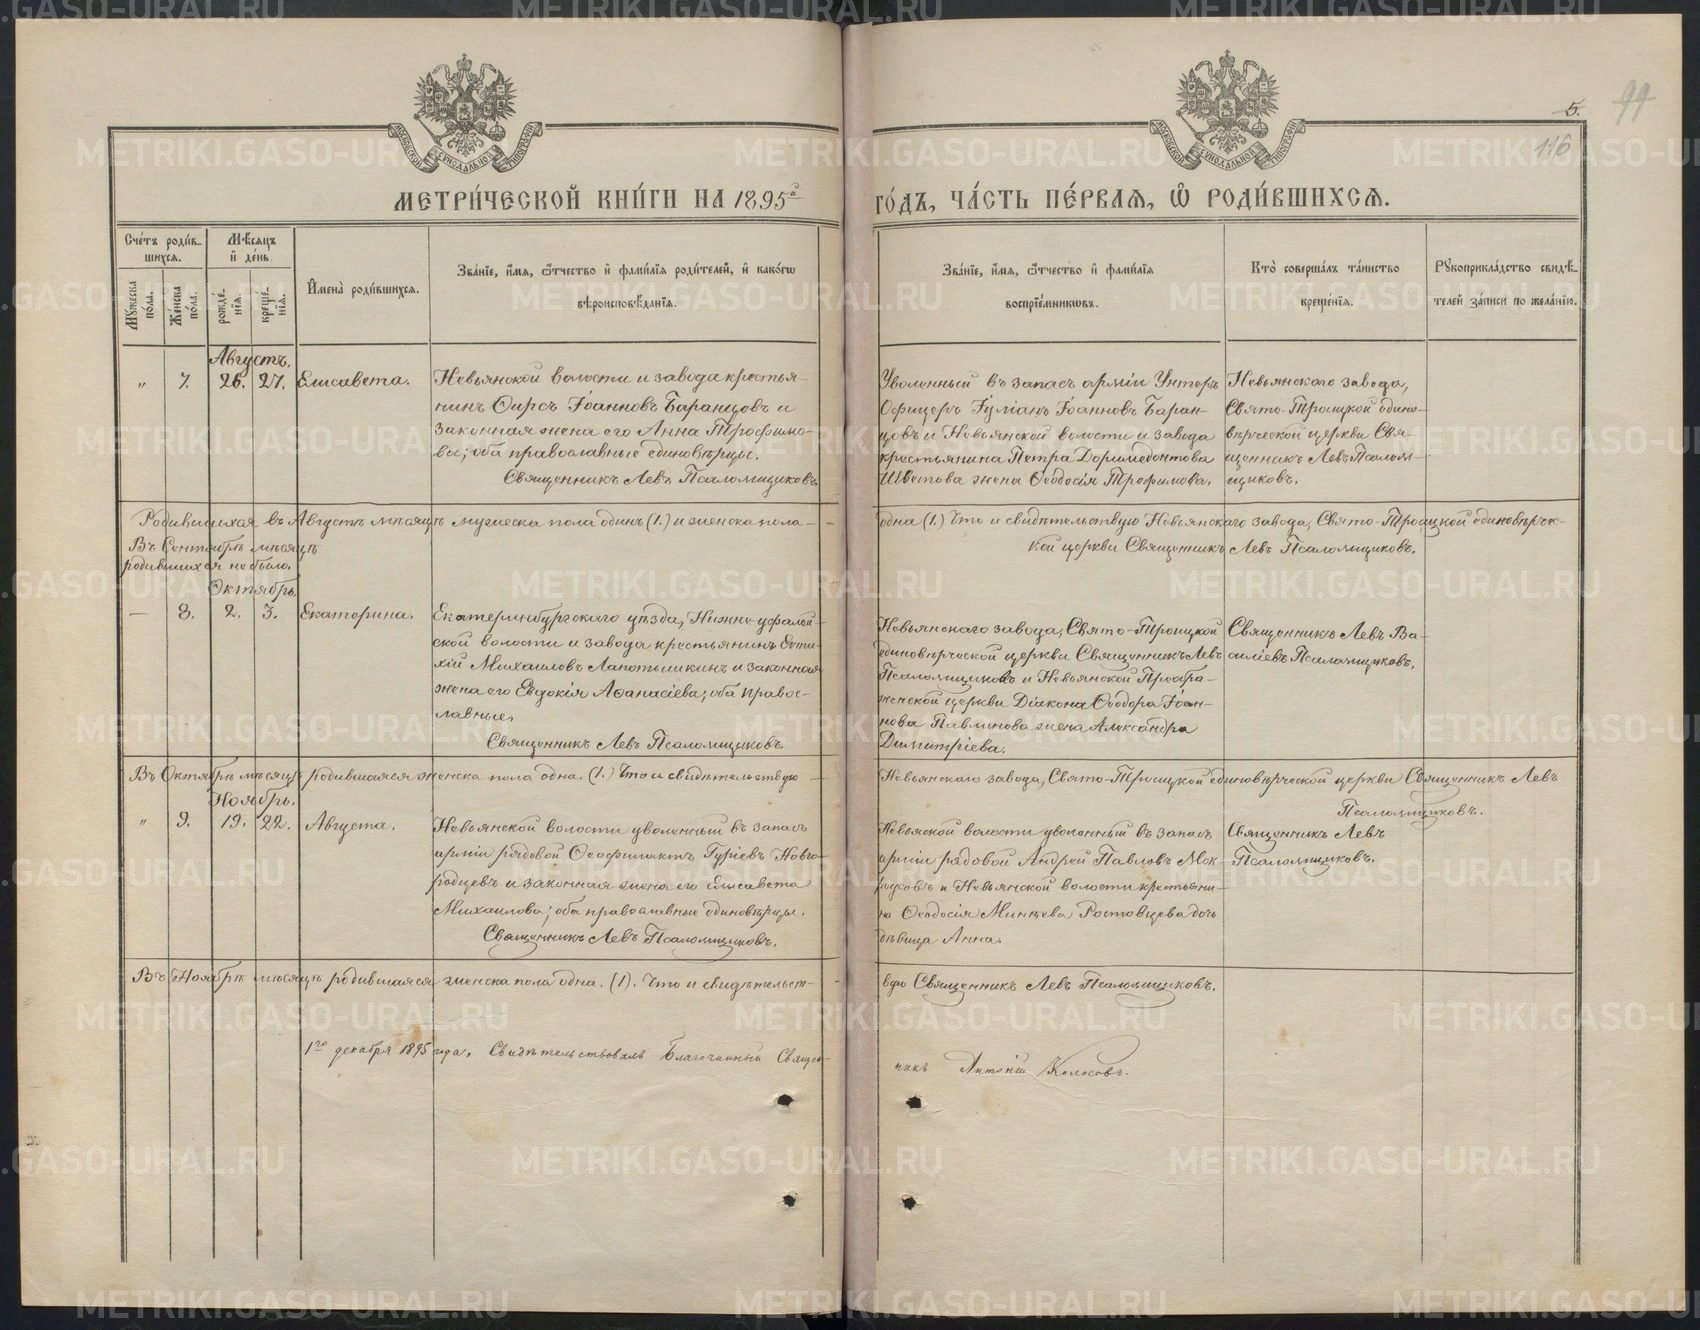 5.
99
116
МЕТРИ́ЧЕСКОЙ КНИ́ГИ НА 1895й ГО́ДЪ, ЧА́СТЬ ПЕ́РВАЯ, Ѽ РОДИ́ВШИХСЯ.
Сче́тъ роди́в-
шихся.
Мѣ́сяцъ
и҆ де́нь
Му́жеска пола.
Же́нска пола.
рожде́-
нїя.
креще́-
нїя.
И҆мена̀ роди́вшихся.
Зва́нїе, и҆́мя, ѻ҆́тчество и҆ фамѝлїя роди́телей, и҆ како́гѡ
вѣроисповѣ́данїя.
Зва́нїе, и҆́мя, ѻ҆́тчество и҆ фамѝлїя
воспрїе́мникѡвъ.
Кто̀ соверша́лъ та́инство
креще́нїя.
Рꙋкоприкла́дство свидѣ́-
телей за́писи по жела́нїю.
Августъ.
„ 7. 26. 27. Елисавета.
Невьянской волости и завода крестья-
нинъ Ѳирсъ Іоанновъ Баранцовъ и
законная жена его Анна Трофимо-
ва; оба православные единовѣрцы.
Священникъ Левъ Псаломщиковъ
Уволенный въ запасъ арміи Унтеръ
Офицеръ Іуліанъ Іоанновъ Баран-
цовъ и Невьянской волости и завода
крестьянина Петра Доримедонтова
Шветова жена Ѳеодосія Трофимова.
Невьянскаго завода,
Свято-Троицкой едино-
вѣрческой церкви Свя-
щенникъ Левъ Псалом-
щиковъ.
Родившихся въ Августѣ мѣсяцѣ мужеска пола одинъ (1.) и женска пола - одна (1.) Что и свидѣтельствую Невьянскаго завода, Свято-Троицкой единовѣрчес-
кой церкви Священникъ Левъ Псаломщиковъ.
Въ Сентябрѣ мѣсяцѣ
родившихся не было.
Октябрь
— 8. 2. 3. Екатерина.
Екатеринбургскаго уѣзда, Нижне-уфалей-
ской волости и завода крестьянинъ Евти-
хій Михаиловъ Лапотышкинъ и законная
жена его Евдокія Аѳанасіева; оба право-
славные.
Священникъ Левъ Псаломщиковъ
Невьянскаго завода, Свято-Троицкой
единовѣрческой церкви Священникъ Левъ
Псаломщиковъ и Невьянской Преобра-
женской церкви Діакона Ѳеодора Іоан-
нова Павлинова жена Александра
Димитріева.
Священникъ Левъ Ва-
силіевъ Псаломщиковъ.
Въ Октябрѣ мѣсяцѣ родившаяся женска пола одна. (1.) Что и свидѣтельствую — Невьянскаго завода, Свято-Троицкой единовѣрческой церкви Священникъ Левъ
Псаломщиковъ.
Ноябрь.
„ 9. 19. 22. Августа.
Невьянской волости уволенный въ запасъ
арміи рядовой Ѳеофилактъ Гуріевъ Новго-
родцевъ и законная жена его Елисавета
Михаилова; оба православные единовѣрцы.
Священникъ Левъ Псаломщиковъ.
Невьяской волости уволенный въ запасъ
арміи рядовой Андрей Павловъ Мок-
роусовъ и Невьянской волости крестьяни-
на Ѳеодосія Минѣева Ростовцева дочь
дѣвица Анна.
Священникъ Левъ
Псаломщиковъ.
Въ Ноябрѣ мѣсяцѣ родившаяся женска пола одна. (1). Что и свидѣтельст- вую Священникъ Левъ Псаломщиковъ.
1го декабря 1895 года. Свидѣтельствовалъ Благочинный Священ- никъ Антоній Колосовъ.
METRIKI.GASO-URAL.RU